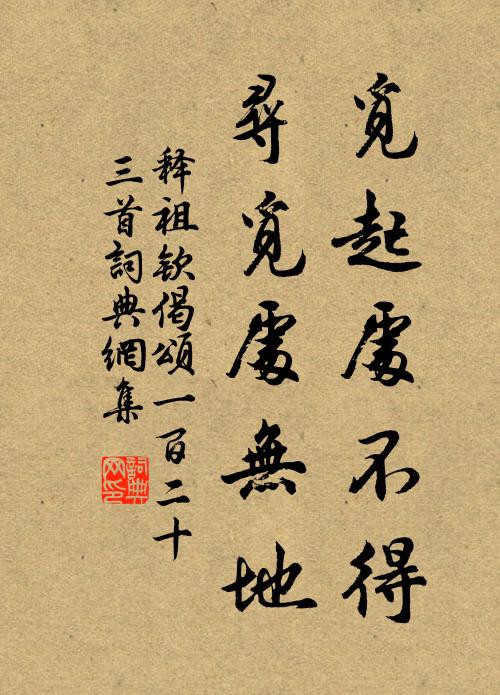 覓起處不得
尋覓處無地
释祖钦偈頌一百二十
三首詞典網集
詞典网印